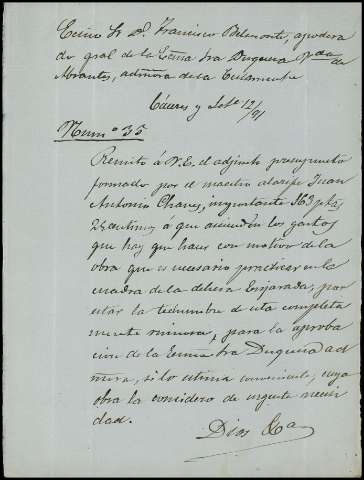 Excmo Sr Dn. Francisco Belmonte, apodera
do gral de la Excma Sra Duquesa Vda de
Abrantes, admora de la Testamente
Cáceres y Sete 12/91
Num.º 35
Remito á V.E. el adjunto presupuesto
formado por el maestro alarife Juan
Antonio Chaves, importante 363 ptas
25 centimos á que ascienden los gastos
que hay que hacer con motivo de la
obra que es necesario practicar en la
cuadra de la dehesa Enjarada, por
estar la techumbre de esta completa
mente ruinosa, para la aproba
cion de la Excma Sra Duquesa ad
mora, si lo estima conveniente, cuya
obra la considero de urgente necesi
dad.
Dios &a